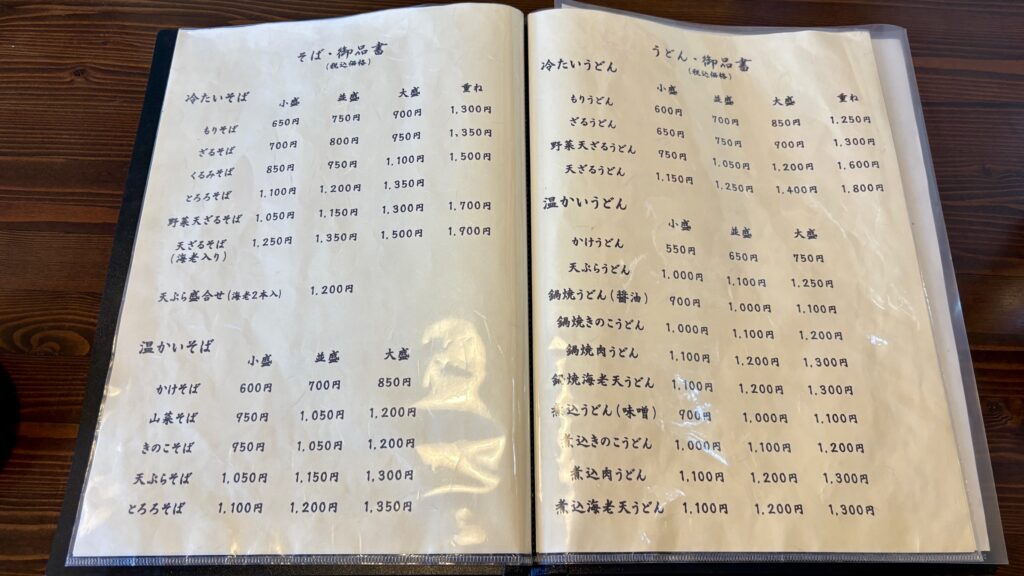 そば・御品書
(税込価格)
冷たいそば 小盛 並盛 大盛 重ね
もりそば 650円 750円 900円 1,300円
ざるそば 700円 800円 950円 1,350円
くるみそば 850円 950円 1,100円 1,500円
とろろそば 1,100円 1,200円 1,350円
野菜天ざるそば 1,050円 1,150円 1,300円 1,700円
天ざるそば 1,250円 1,350円 1,500円 1,900円
(海老入り)
天ぷら盛合せ(海老2本入) 1,200円
温かいそば 小盛 並盛 大盛
かけそば 600円 700円 850円
山菜そば 950円 1,050円 1,200円
きのこそば 950円 1,050円 1,200円
天ぷらそば 1,050円 1,150円 1,300円
とろろそば 1,100円 1,200円 1,350円
うどん・御品書
(税込価格)
冷たいうどん 小盛 並盛 大盛 重ね
もりうどん 600円 700円 850円 1,250円
ざるうどん 650円 750円 900円 1,300円
野菜天ざるうどん 950円 1,050円 1,200円 1,600円
天ざるうどん 1,150円 1,250円 1,400円 1,800円
温かいうどん 小盛 並盛 大盛
かけうどん 550円 650円 750円
天ぷらうどん 1,000円 1,100円 1,250円
鍋焼うどん(醤油) 900円 1,000円 1,100円
鍋焼きのこうどん 1,000円 1,100円 1,200円
鍋焼肉うどん 1,100円 1,200円 1,300円
鍋焼海老天うどん 1,100円 1,200円 1,300円
煮込うどん(味噌) 900円 1,000円 1,100円
煮込きのこうどん 1,000円 1,100円 1,200円
煮込肉うどん 1,100円 1,200円 1,300円
煮込海老天うどん 1,100円 1,200円 1,300円